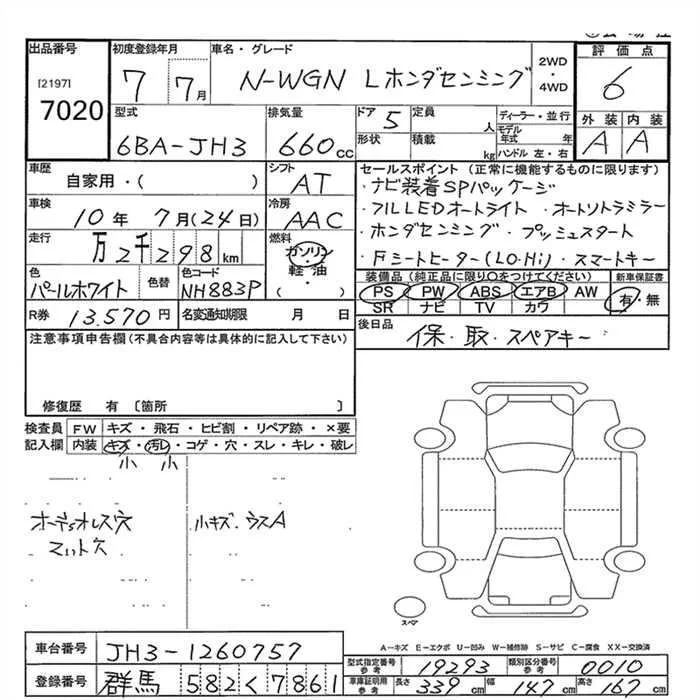 出品番号
[2197]
7020
初度登録年月
7 7月
車名・グレード
N-WGN Lホンダセンシング
2WD
・
4WD
評価点
6
外装 内装
A A
型式
6BA-JH3
排気量
660cc
ドア 5
形状
定員 人
積載 kg
ディーラー・並行
モデル年式 年
ハンドル 左・右
車歴
自家用・( )
シフト
AT
車検
10年 7月(24日)
冷房
AAC
走行
万2千298km
燃料
ガソリン
・
軽油
( )
色
パールホワイト
色替
色コード
NH883P
R券 13,570円
名変通知期限 月 日
セールスポイント(正常に機能するものに限ります)
・ナビ装着SPパッケージ
・フルLEDオートライト・オートリトラミラー
・ホンダセンシング・プッシュスタート
・Fシートヒーター(LO・Hi)・スマートキー
装備品(純正品に限り○をつけてください)
PS PW ABS エアB AW
SR ナビ TV カワ
新車保証書
有・無
後日品
保・取・スペアキー
注意事項申告欄(不具合内容等は具体的に記入して下さい)
修復歴 有〔箇所 〕
検査員記入欄
FW キズ・飛石・ヒビ割・リペア跡・×要
内装 キズ・汚レ・コゲ・穴・スレ・キレ・破レ
小 小
オーディオレス穴
マット穴
小キズ・ウスA
スペア
A−キズ E−エクボ U−凹み W−補修跡 S−サビ C−腐食 XX−交換済
車台番号 JH3-1260757
登録番号 群馬 582く7861
型式指定番号 参考 19293
類別区分番号 参考 0010
車庫証明用 参考 長さ 339cm 幅 147cm 高さ 167cm